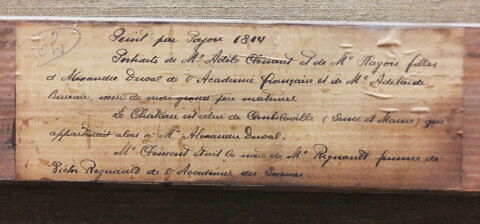 62
Peint par Pajou 1814
Portraits de Mme Adèle Clément et de Me Ragois filles
d'Alexandre Duval de l'Académie française et de Me Adelaide
Bureau, sœurs de notre grand père maternel
Le Chateau est celui de Combs la ville (Seine et Marne) qui
appartenait alors à Mr Alexandre Duval.
Me Clément était la mère de Me Regnault femme de
Victor Regnault de l'Académie des Sciences.